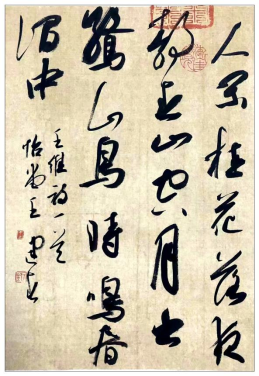 人閑桂花落夜
静春山空月出
驚山鳥時鳴春
澗中
王維詩一首
怡斋王